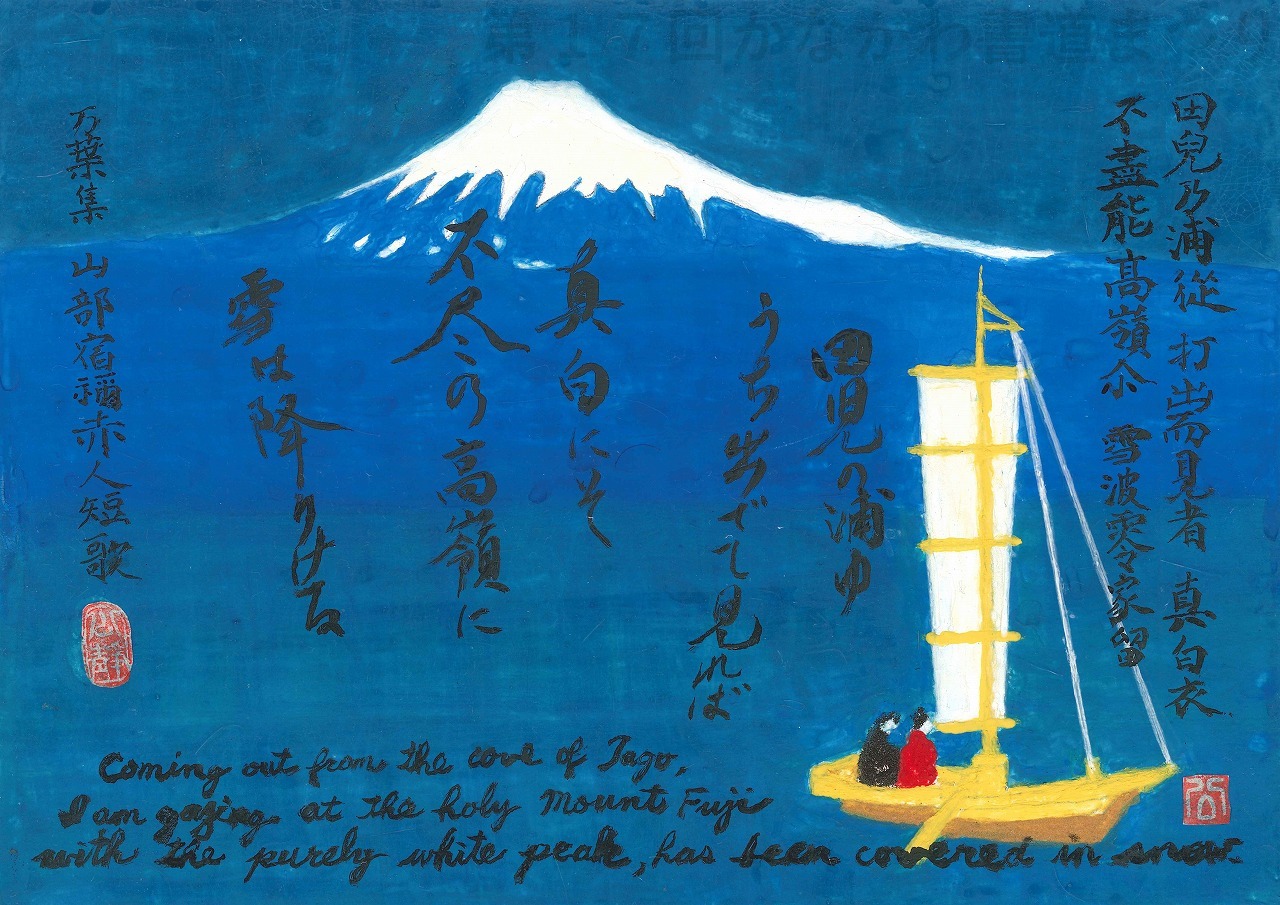 第17回かながわ書道まつり
田兒乃浦従 打出而見者 真白衣
不盡能高嶺尒 雪波零家留
田児の浦ゆ
うち出でて見れば
真白にそ
不尽の高嶺に
雪は降りける
万葉集 山部宿禰赤人短歌
Coming out from the cove of Tago,
I am gazing at the holy Mount Fuji
with the purely white peak, has been covered in snow.